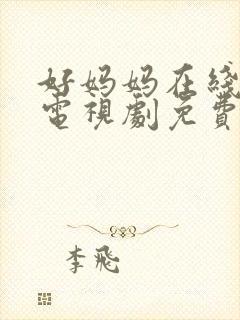 好妈妈在线
電視劇免費
李飛